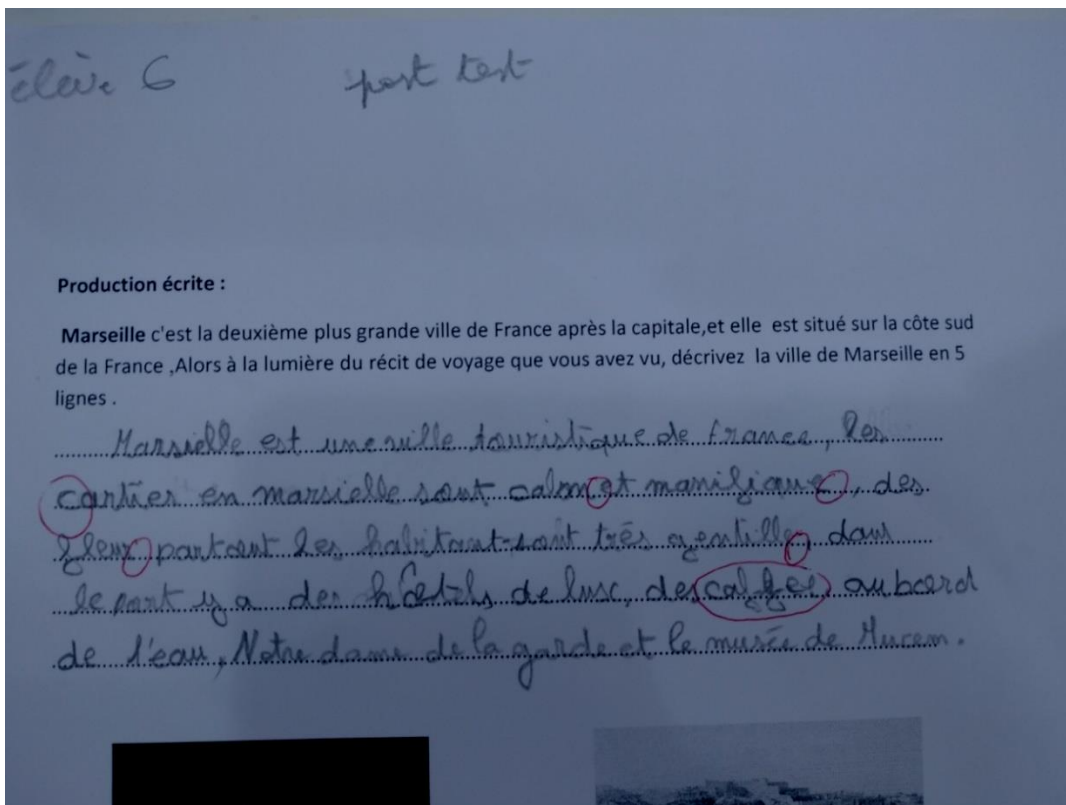 élève 6 post test
Production écrite :
Marseille c'est la deuxième plus grande ville de France après la capitale,et elle est situé sur la côte sud
de la France ,Alors à la lumière du récit de voyage que vous avez vu, décrivez la ville de Marseille en 5
lignes .
Marsielle est une ville touristique de france, les
cartier en marsielle sont calm et manifique, des
fleur partout les habitant sont très gentille, dans
le port y a des hôtels de lusc, des caffes au bord
de l'eau, Notre dame de la garde et le musée de Mucem.